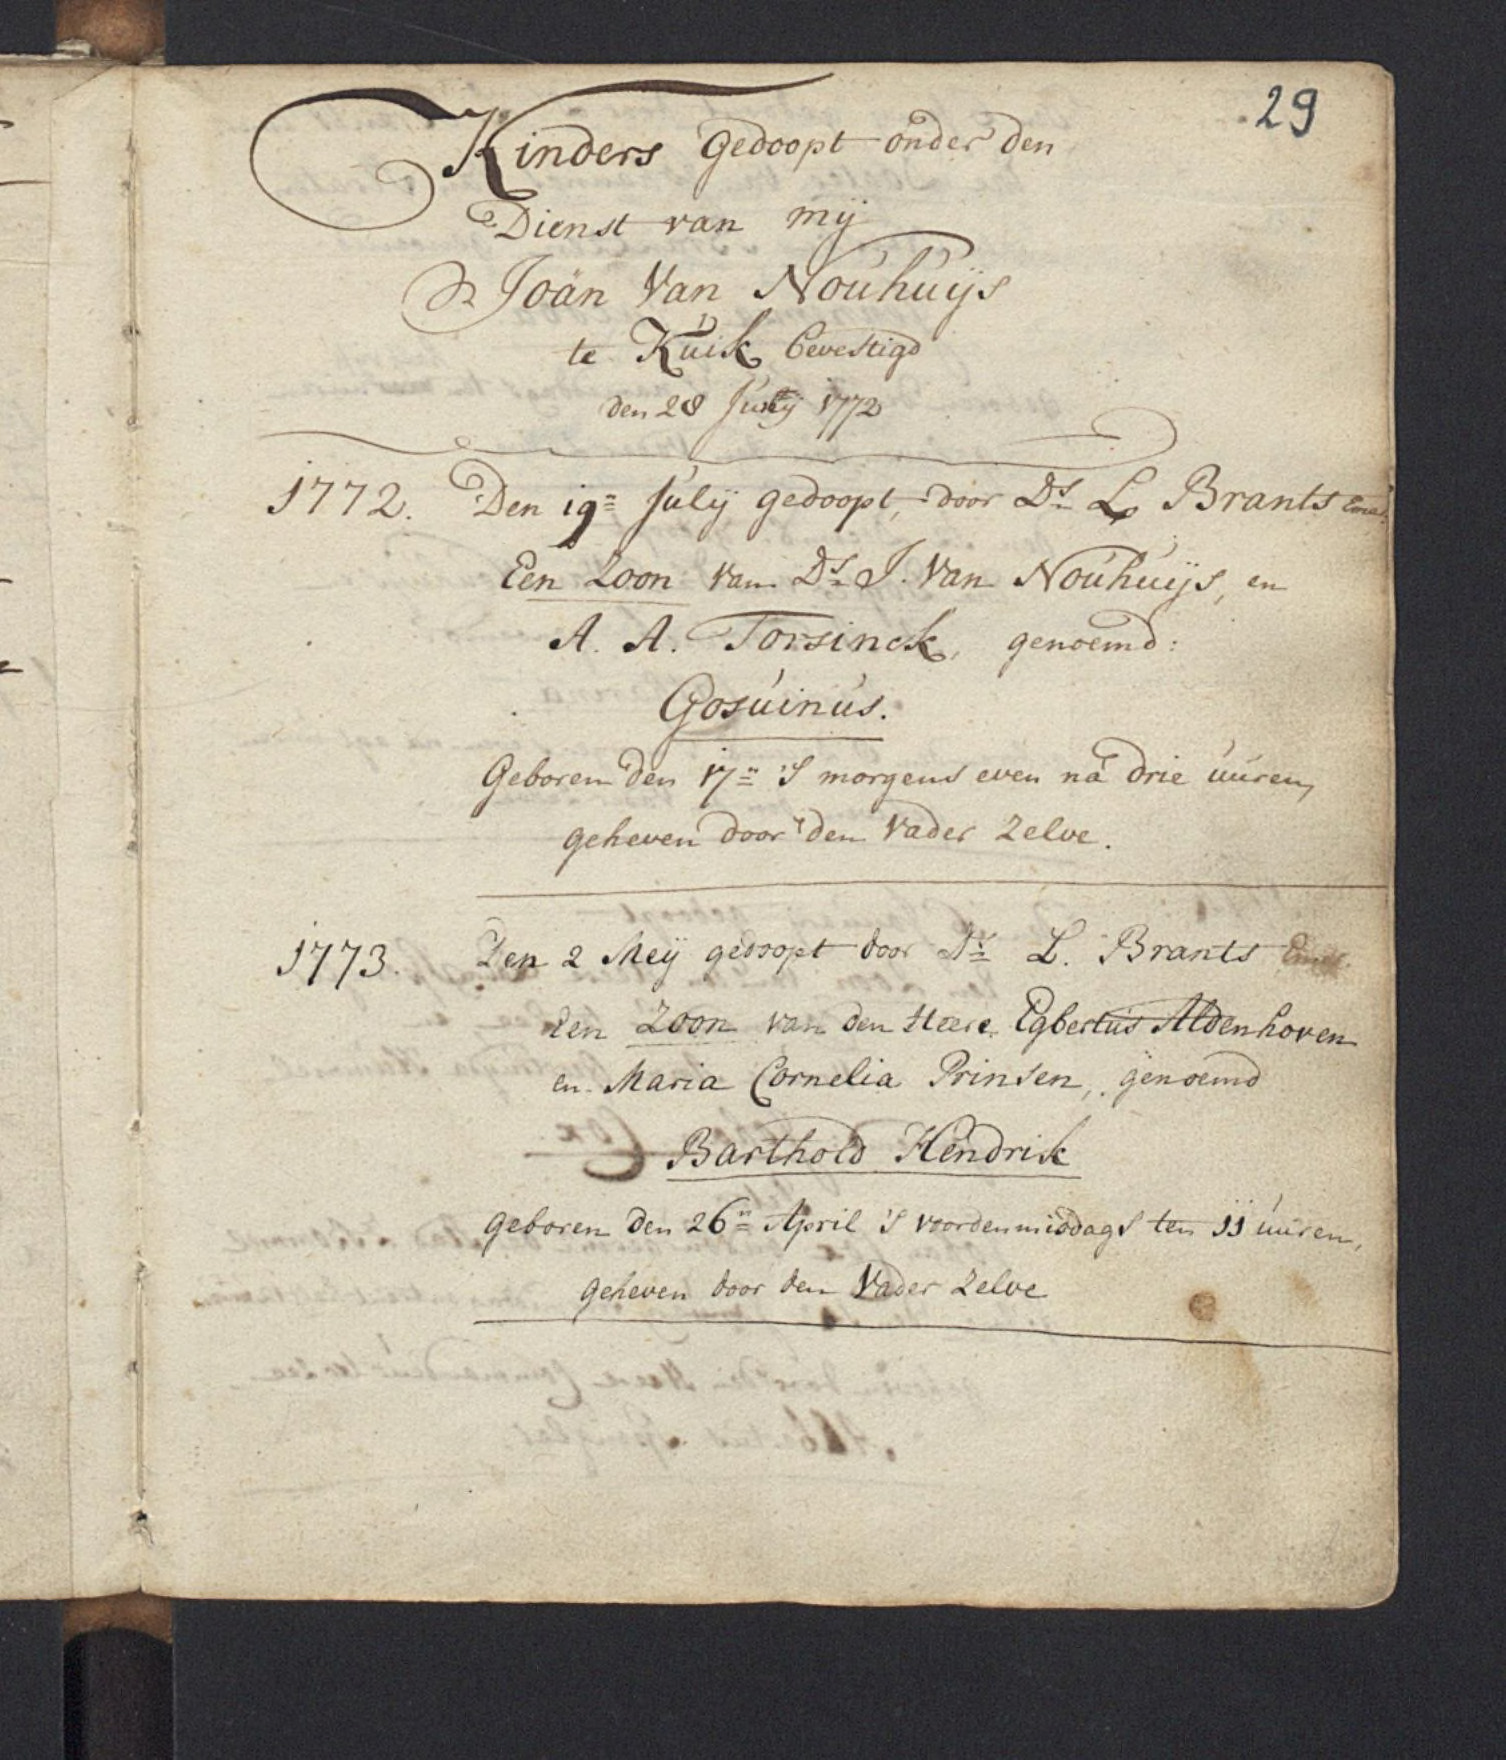 29
Kinders Gedoopt onder den
Dienst van mij
Joän Van Nouhuijs
te Kuik bevestigd
den 28 Junij 1772
1772. Den 19n July gedoopt, door Ds L Brants Emer.
Een Zoon van Ds J. Van Nouhuijs, en
A. A. Torsinck, genoemd:
Gosuinus.
Geboren den 17n 's morgens even na drie uuren,
geheven door den Vader Zelve.
1773. Den 2 Meij gedoopt door Ds L. Brants Emer.
Een Zoon van den Heere Egbertus Aldenhoven
en Maria Cornelia Prinsen, genoemd
Barthold Hendrik
geboren den 26n April 's voordenmiddags ten 11 uuren,
geheven door den Vader Zelve